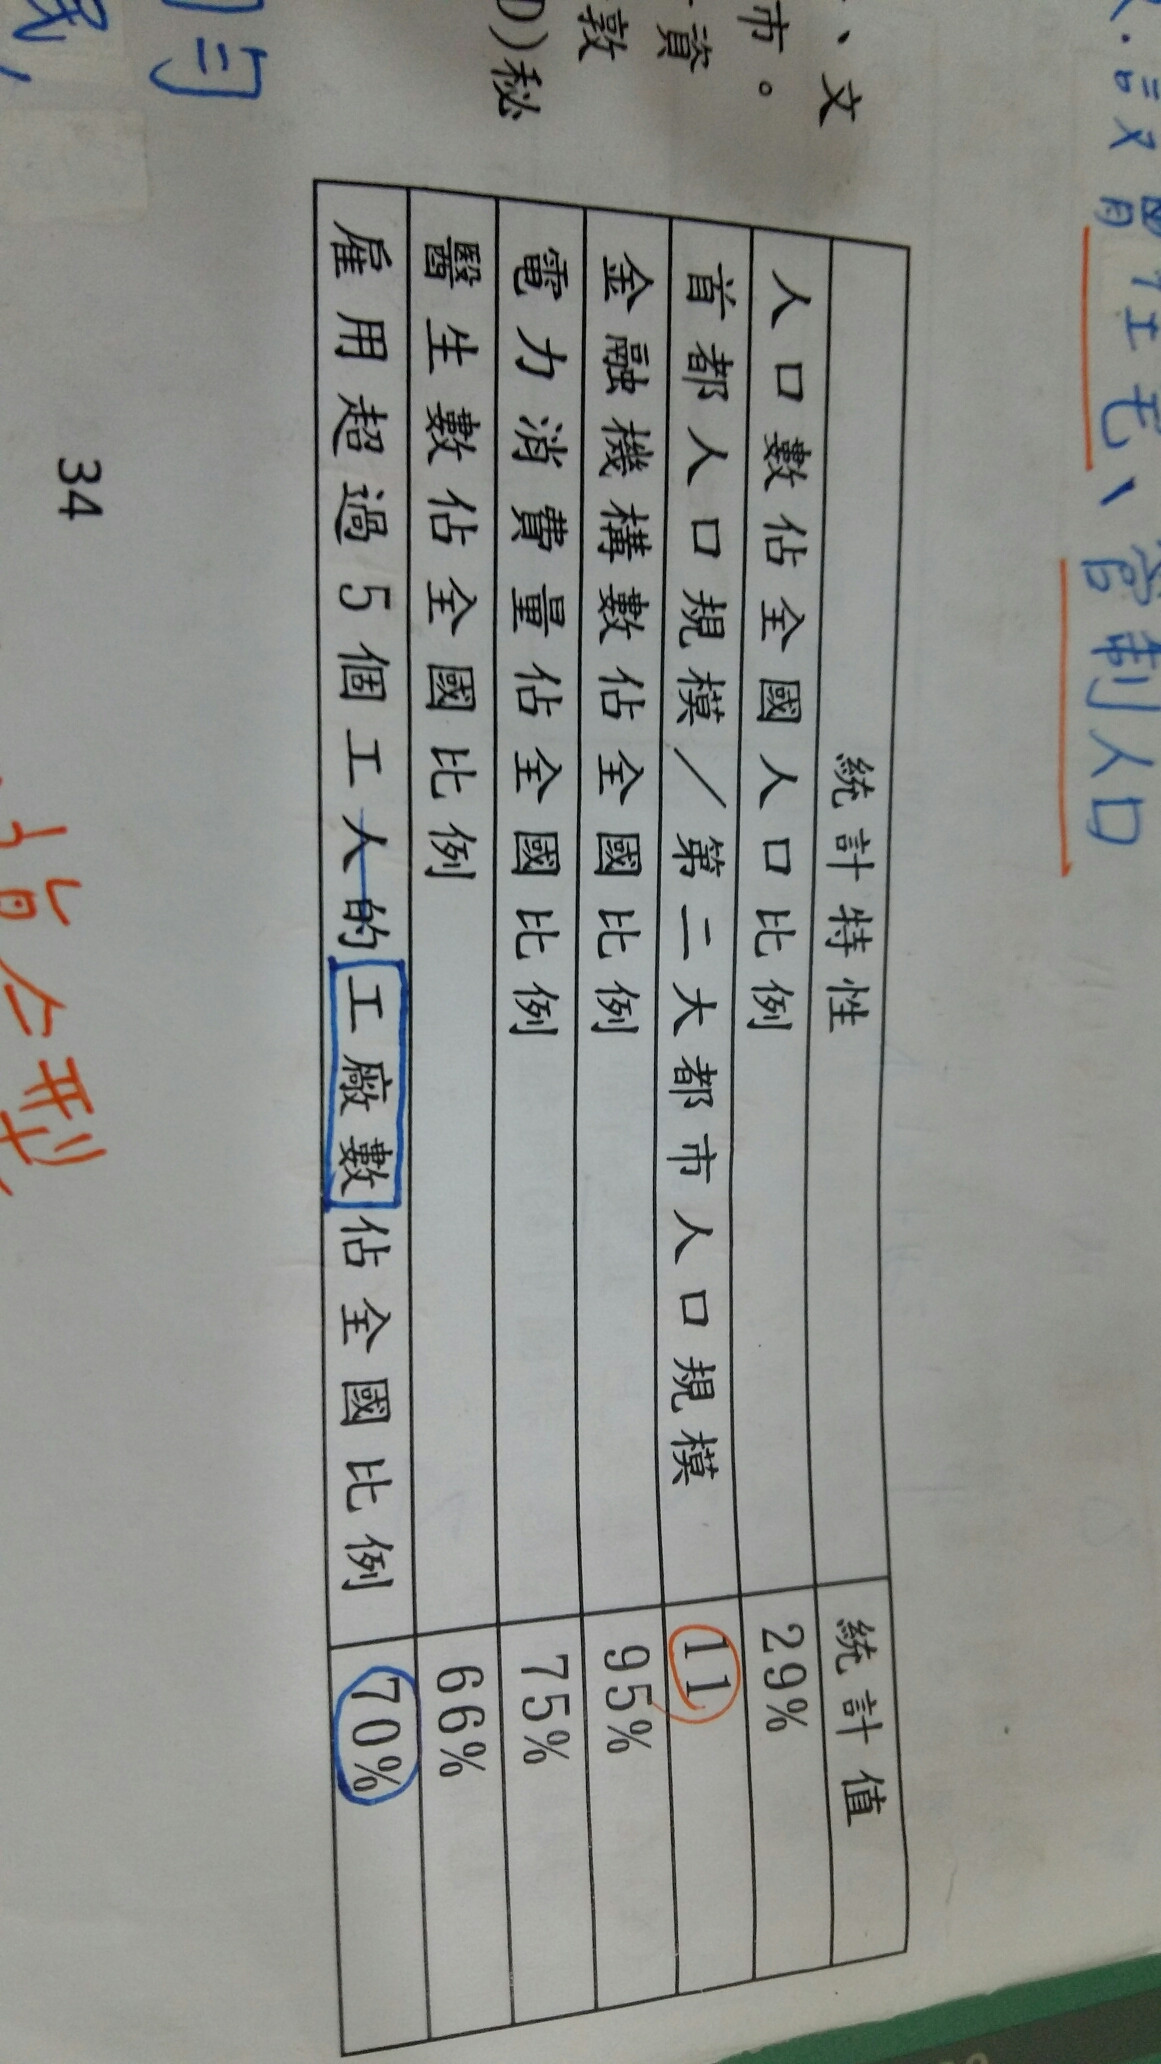 、文
市。
資
敦
D)秘
管制人口
統計特性 統計值
人口數佔全國人口比例 29%
首都人口規模／第二大都市人口規模 11
金融機構數佔全國比例 95%
電力消費量佔全國比例 75%
醫生數佔全國比例 66%
雇用超過5個工人的工廠數佔全國比例 70%
34
型